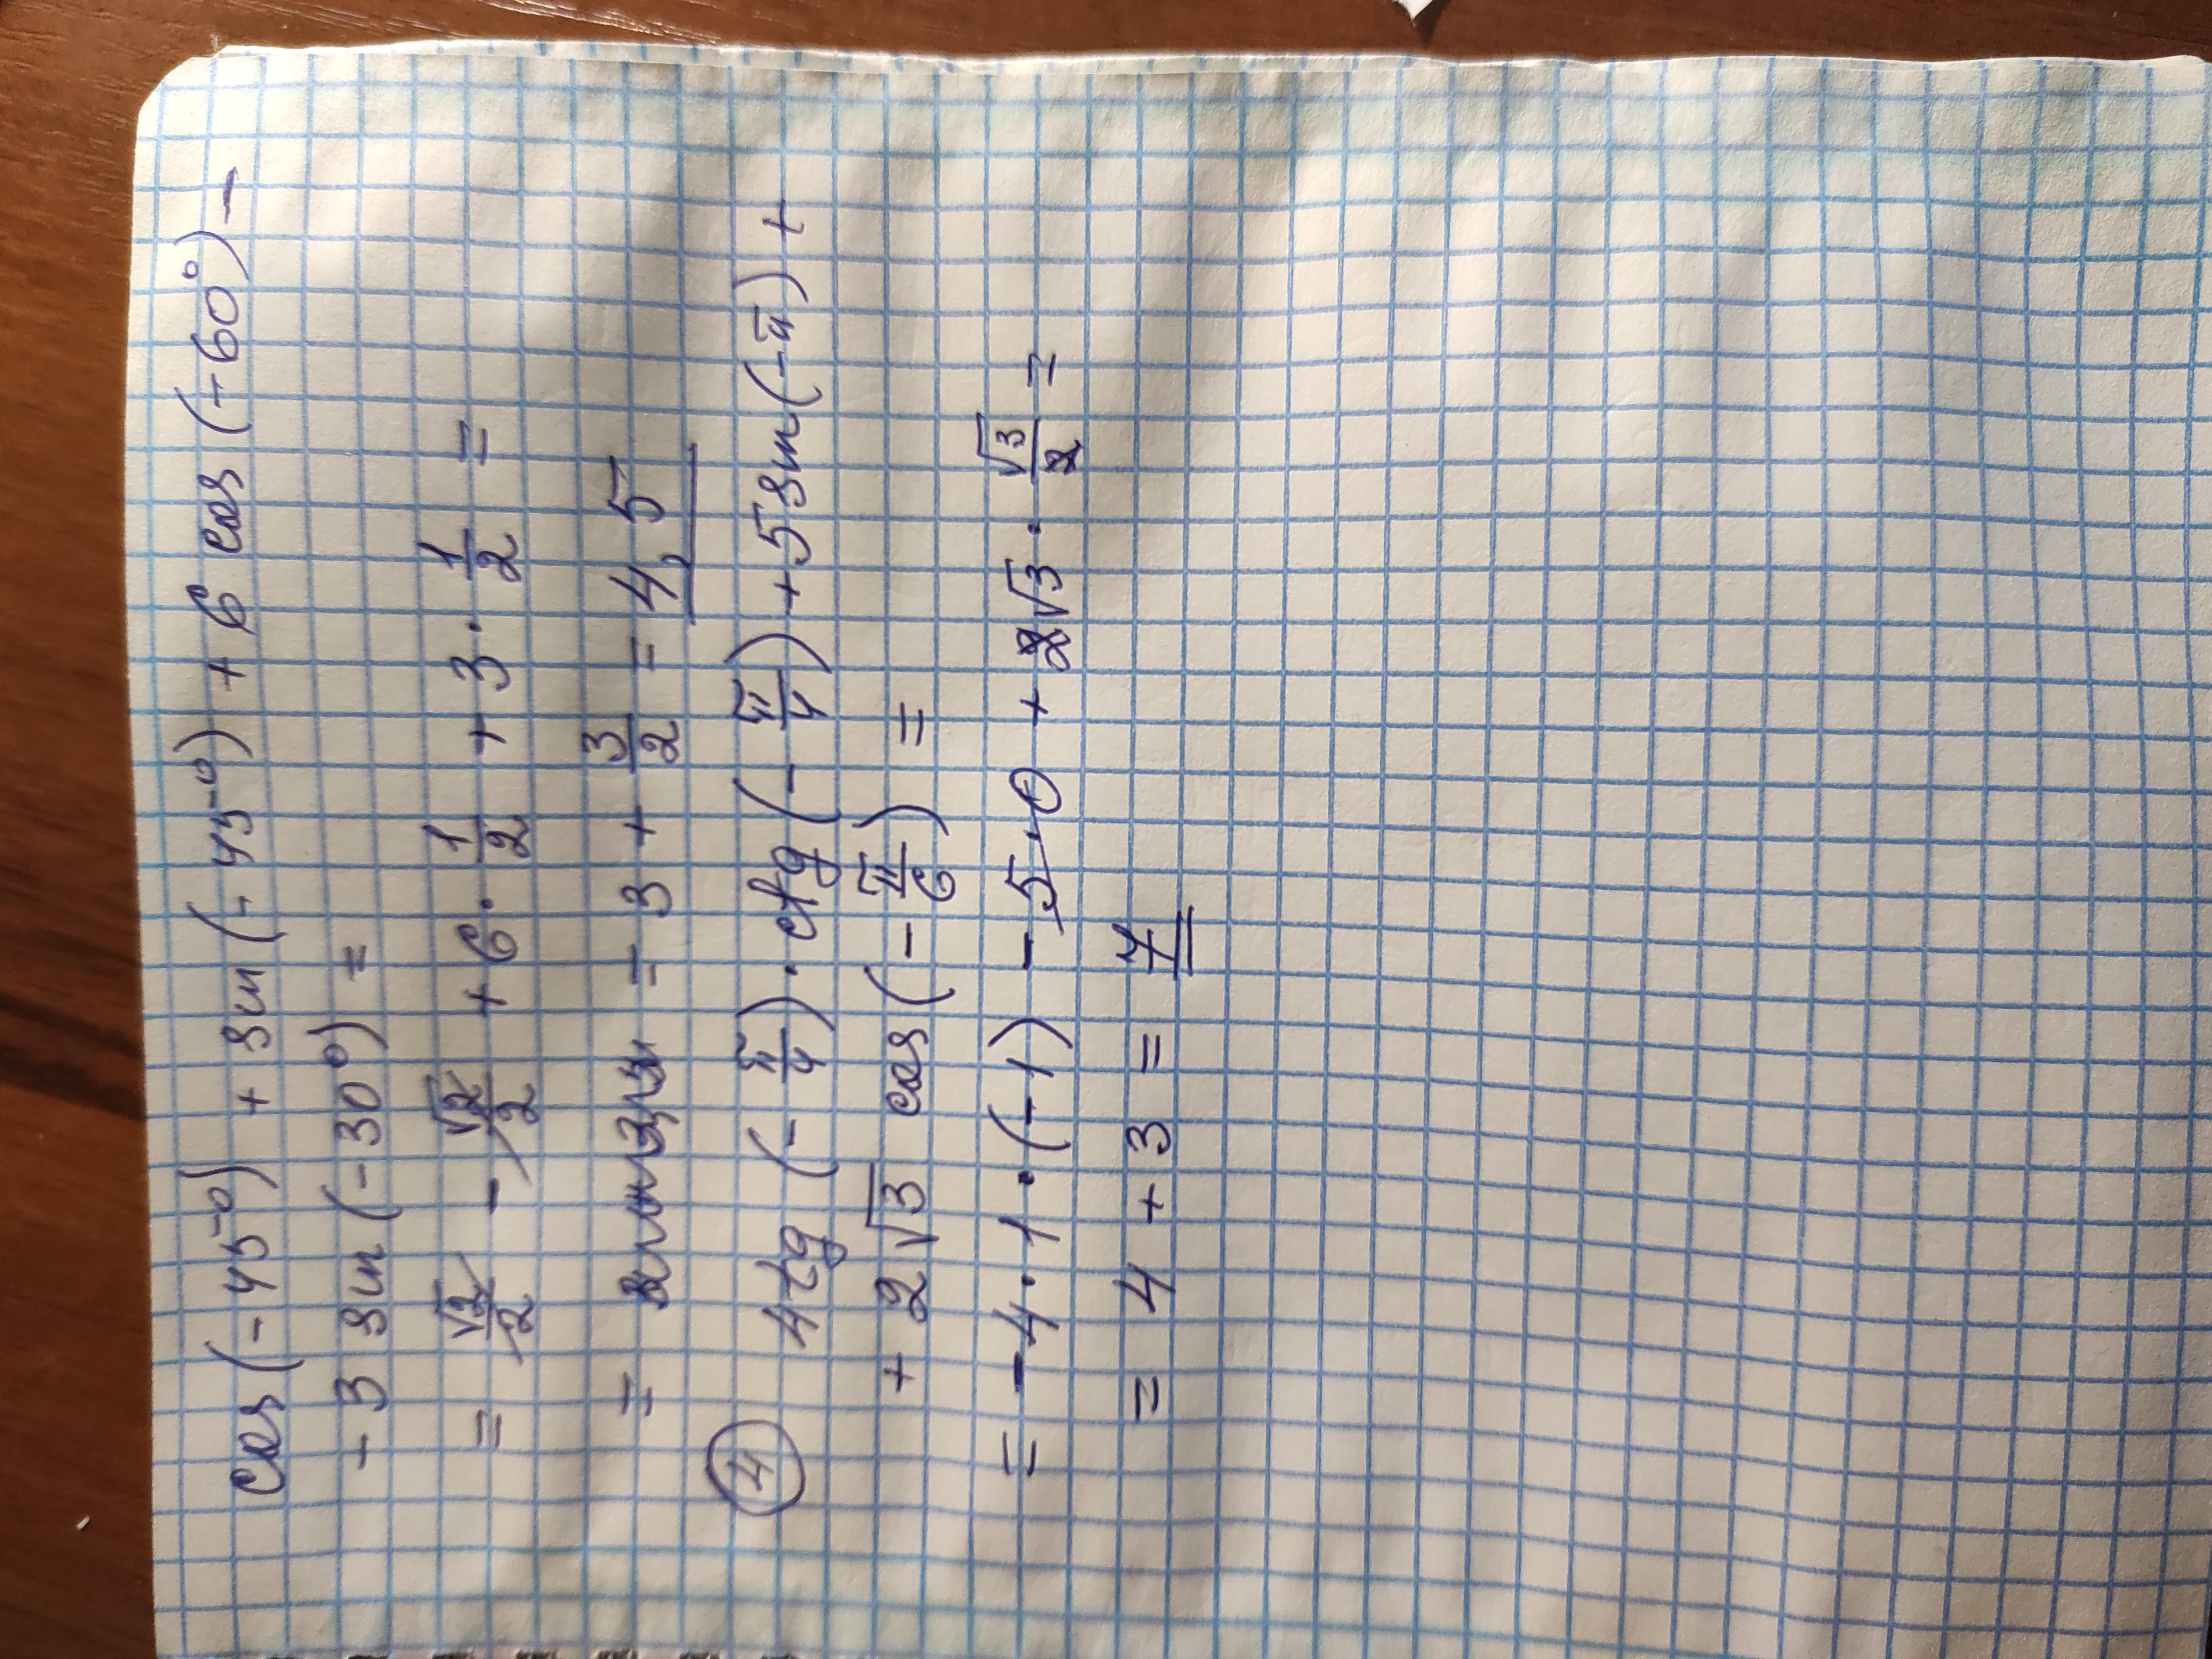 cos (-45°) + sin (-45°) + 6 cos (-60°) -
- 3 sin (-30°) =
= √2/2 - √2/2 + 6 · 1/2 + 3 · 1/2 =
= = 3 + 3/2 = 4,5
④ 4tg (-π/4) · ctg (-π/4) + 5 sin (-π) +
+ 2√3 cos (-π/6) =
= -4 · 1 · (-1) - 5 · 0 + 2√3 · √3/2 =
= 4 + 3 = 7